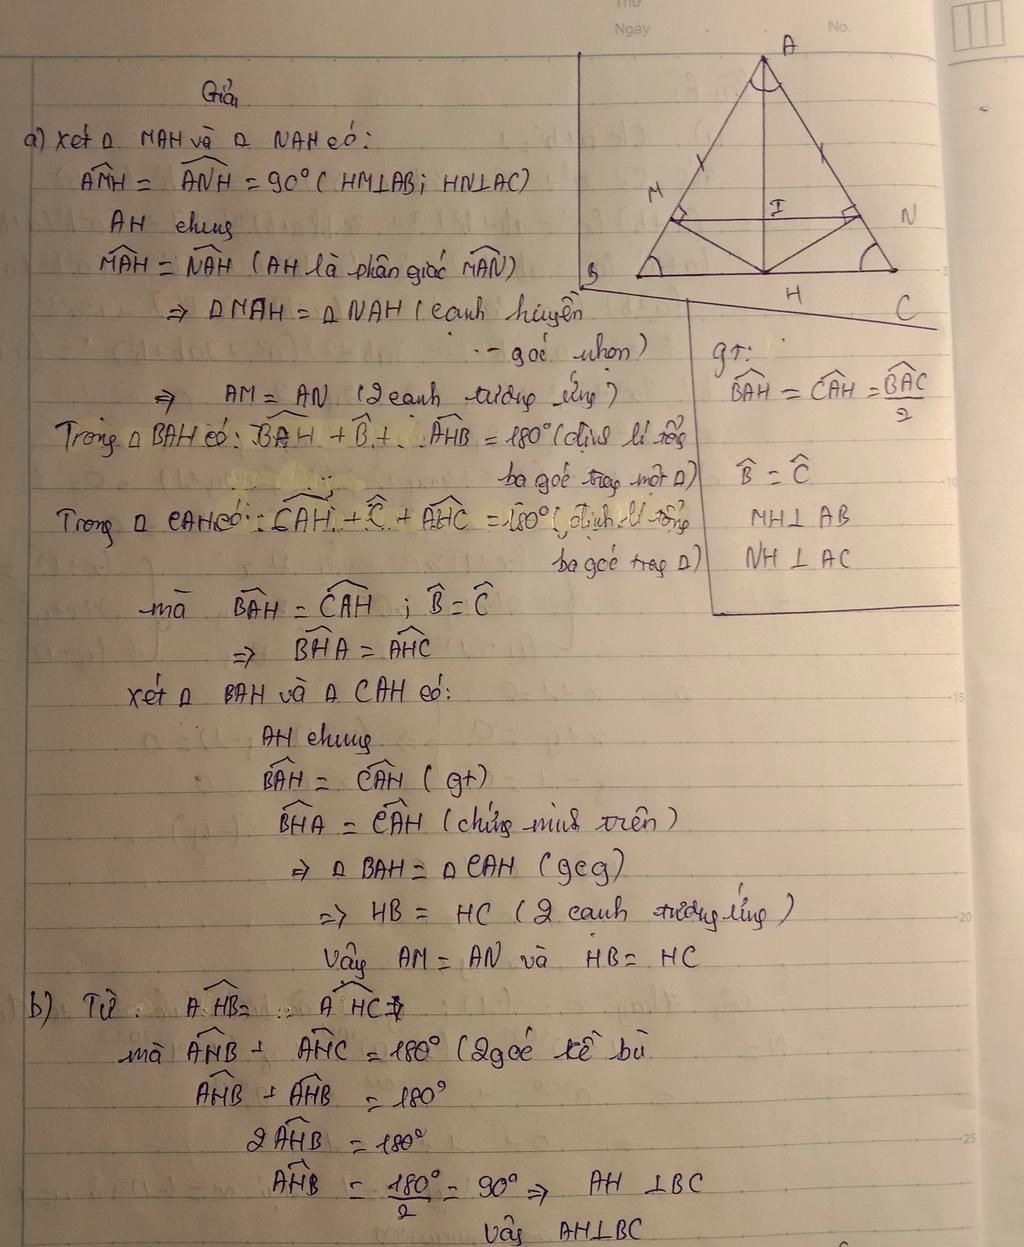 Thứ
Ngày
No.
Giải
a) Xét Δ MAH và Δ NAH có:
A
$\widehat{AMH}$ = $\widehat{ANH}$ = 90° (HM⊥AB; HN⊥AC)
AH chung
M
I
N
$\widehat{MAH}$ = $\widehat{NAH}$ (AH là phân giác $\widehat{MAN}$)
B
H
C
⇒ Δ MAH = Δ NAH (cạnh huyền
- góc nhọn)
⇒ AM = AN (2 cạnh tương ứng)
Trong Δ BAH có: $\widehat{BAH}$ + $\widehat{B}$ + $\widehat{AHB}$ = 180° (định lí tổng
ba góc trong một Δ)
Trong Δ CAH có: $\widehat{CAH}$ + $\widehat{C}$ + $\widehat{AHC}$ = 180° (định lí tổng
ba góc trong Δ)
gt:
$\widehat{BAH}$ = $\widehat{CAH}$ = $\frac{\widehat{BAC}}{2}$
$\widehat{B}$ = $\widehat{C}$
MH ⊥ AB
NH ⊥ AC
mà $\widehat{BAH}$ = $\widehat{CAH}$ ; $\widehat{B}$ = $\widehat{C}$
⇒ $\widehat{BHA}$ = $\widehat{AHC}$
xét Δ BAH và Δ CAH có:
AH chung
$\widehat{BAH}$ = $\widehat{CAH}$ (gt)
$\widehat{BHA}$ = $\widehat{CAH}$ (chứng minh trên)
⇒ Δ BAH = Δ CAH (gcg)
⇒ HB = HC (2 cạnh tương ứng)
Vậy AM = AN và HB = HC
b) Từ $\widehat{AHB}$ = $\widehat{AHC}$
mà $\widehat{AHB}$ + $\widehat{AHC}$ = 180° (2 góc kề bù
$\widehat{AHB}$ + $\widehat{AHB}$ = 180°
2 $\widehat{AHB}$ = 180°
$\widehat{AHB}$ = $\frac{180°}{2}$ = 90° ⇒ AH ⊥ BC
Vậy AH⊥BC
15
20
25